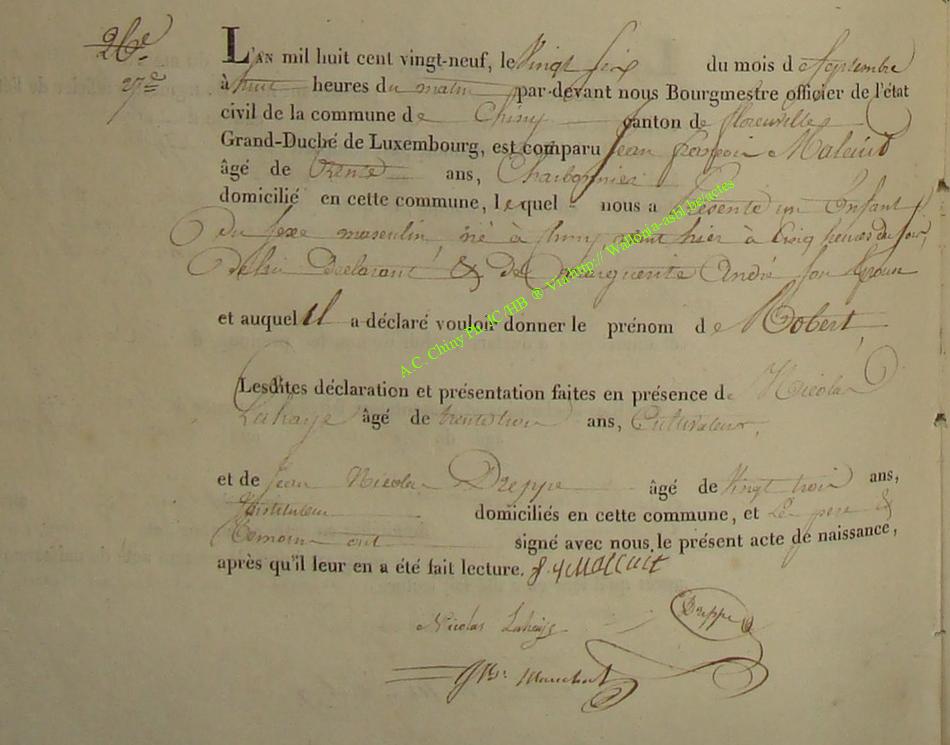 26e
27e
L'AN mil huit cent vingt-neuf, le Vingt six du mois de Septembre
à huit heures du matin par-devant nous Bourgmestre officier de l'état
civil de la commune de Chiny canton de florenville
Grand-Duché de Luxembourg, est comparu Jean françois
âgé de trente ans, Charbonnier
domicilié en cette commune, lequel nous a présenté un Enfant
du sexe masculin, né à Chiny hier à Cinq heures du
De lui Déclarant & de Marguerite André son
et auquel il a déclaré vouloir donner le prénom de Robert
Lesdites déclaration et présentation faites en présence de Nicolas
Lahaye âgé de trente trois ans, Cultivateur,
et de Jean Nicolas Dreppe âgé de Vingt trois ans,
Instituteur domiciliés en cette commune, et Le père &
Témoins ont signé avec nous le présent acte de naissance,
après qu'il leur en a été fait lecture.
Dreppe
Nicolas Lahaye
A.C. Chiny Ph.JC /HB ® Via http:// Wallonia-asbl.be/actes